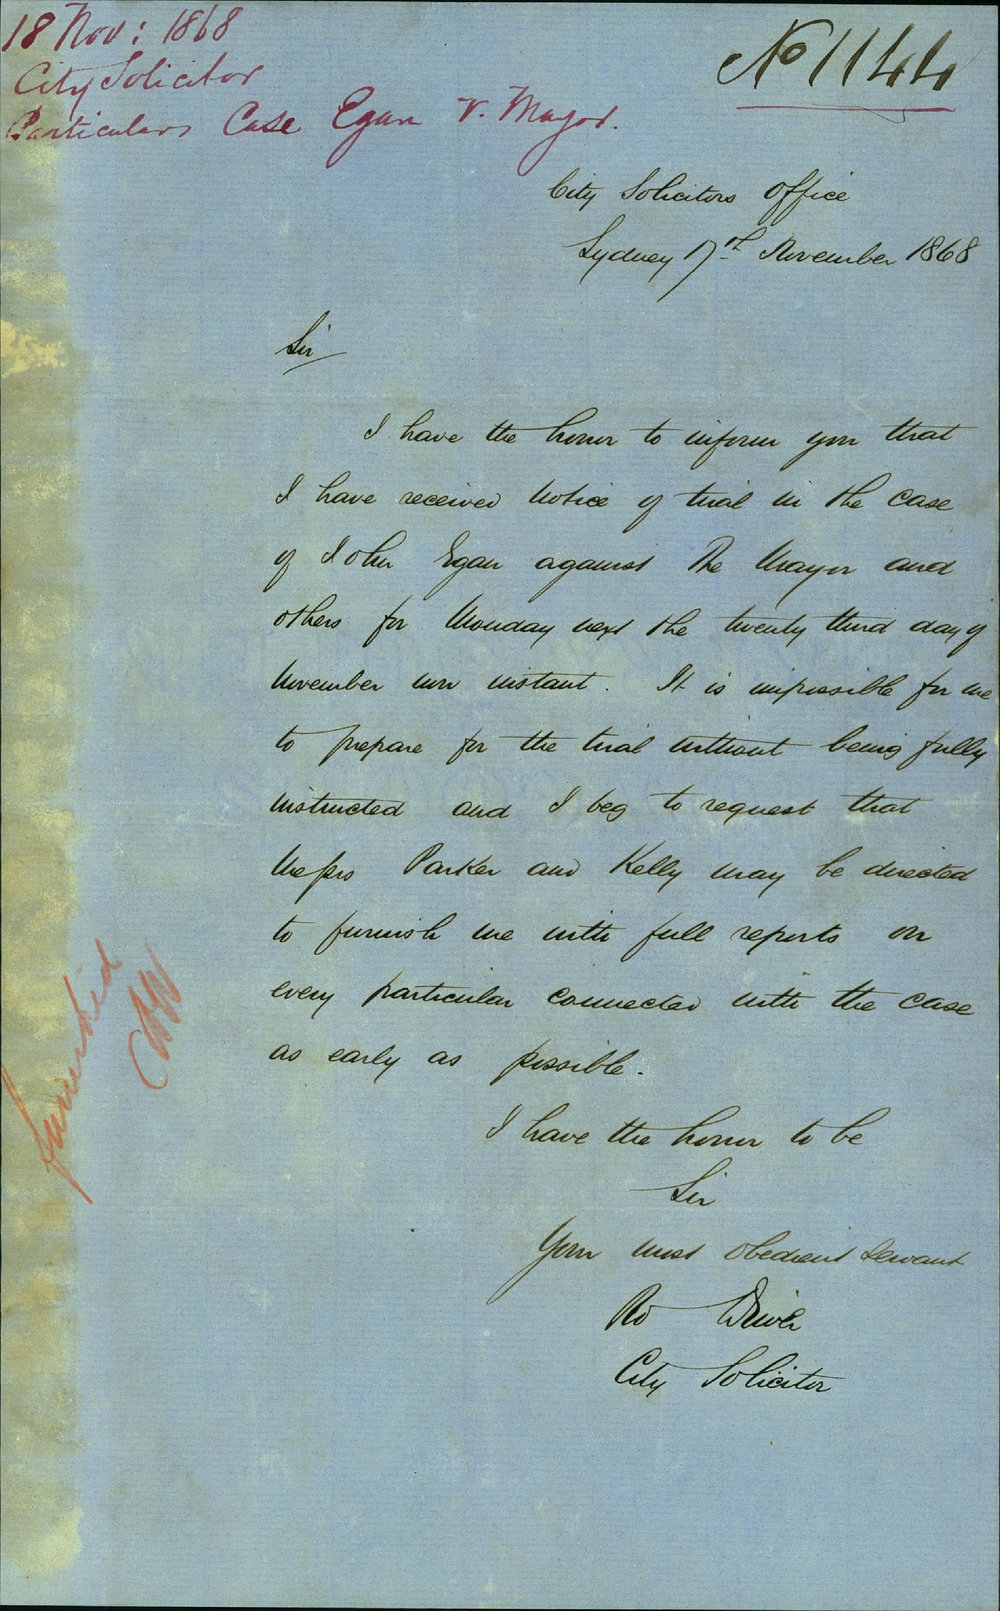 18 Nov: 1868
City Solicitor
Particulars Case Egan v. Mayor.
No 1144
City Solicitors Office
Sydney 17th November 1868
Sir
I have the honor to inform you that
I have received notice of trial in the case
of John Egan against The Mayor and
others for Monday next the twenty third day of
November now instant. It is impossible for me
to prepare for the trial without being fully
instructed and I beg to request that
Messrs Parker and Kelly may be directed
to furnish me with full reports on
every particular connected with the case
as early as possible.
I have the honor to be
Sir
Your most obedient servant
Ro Driver
City Solicitor
furnished